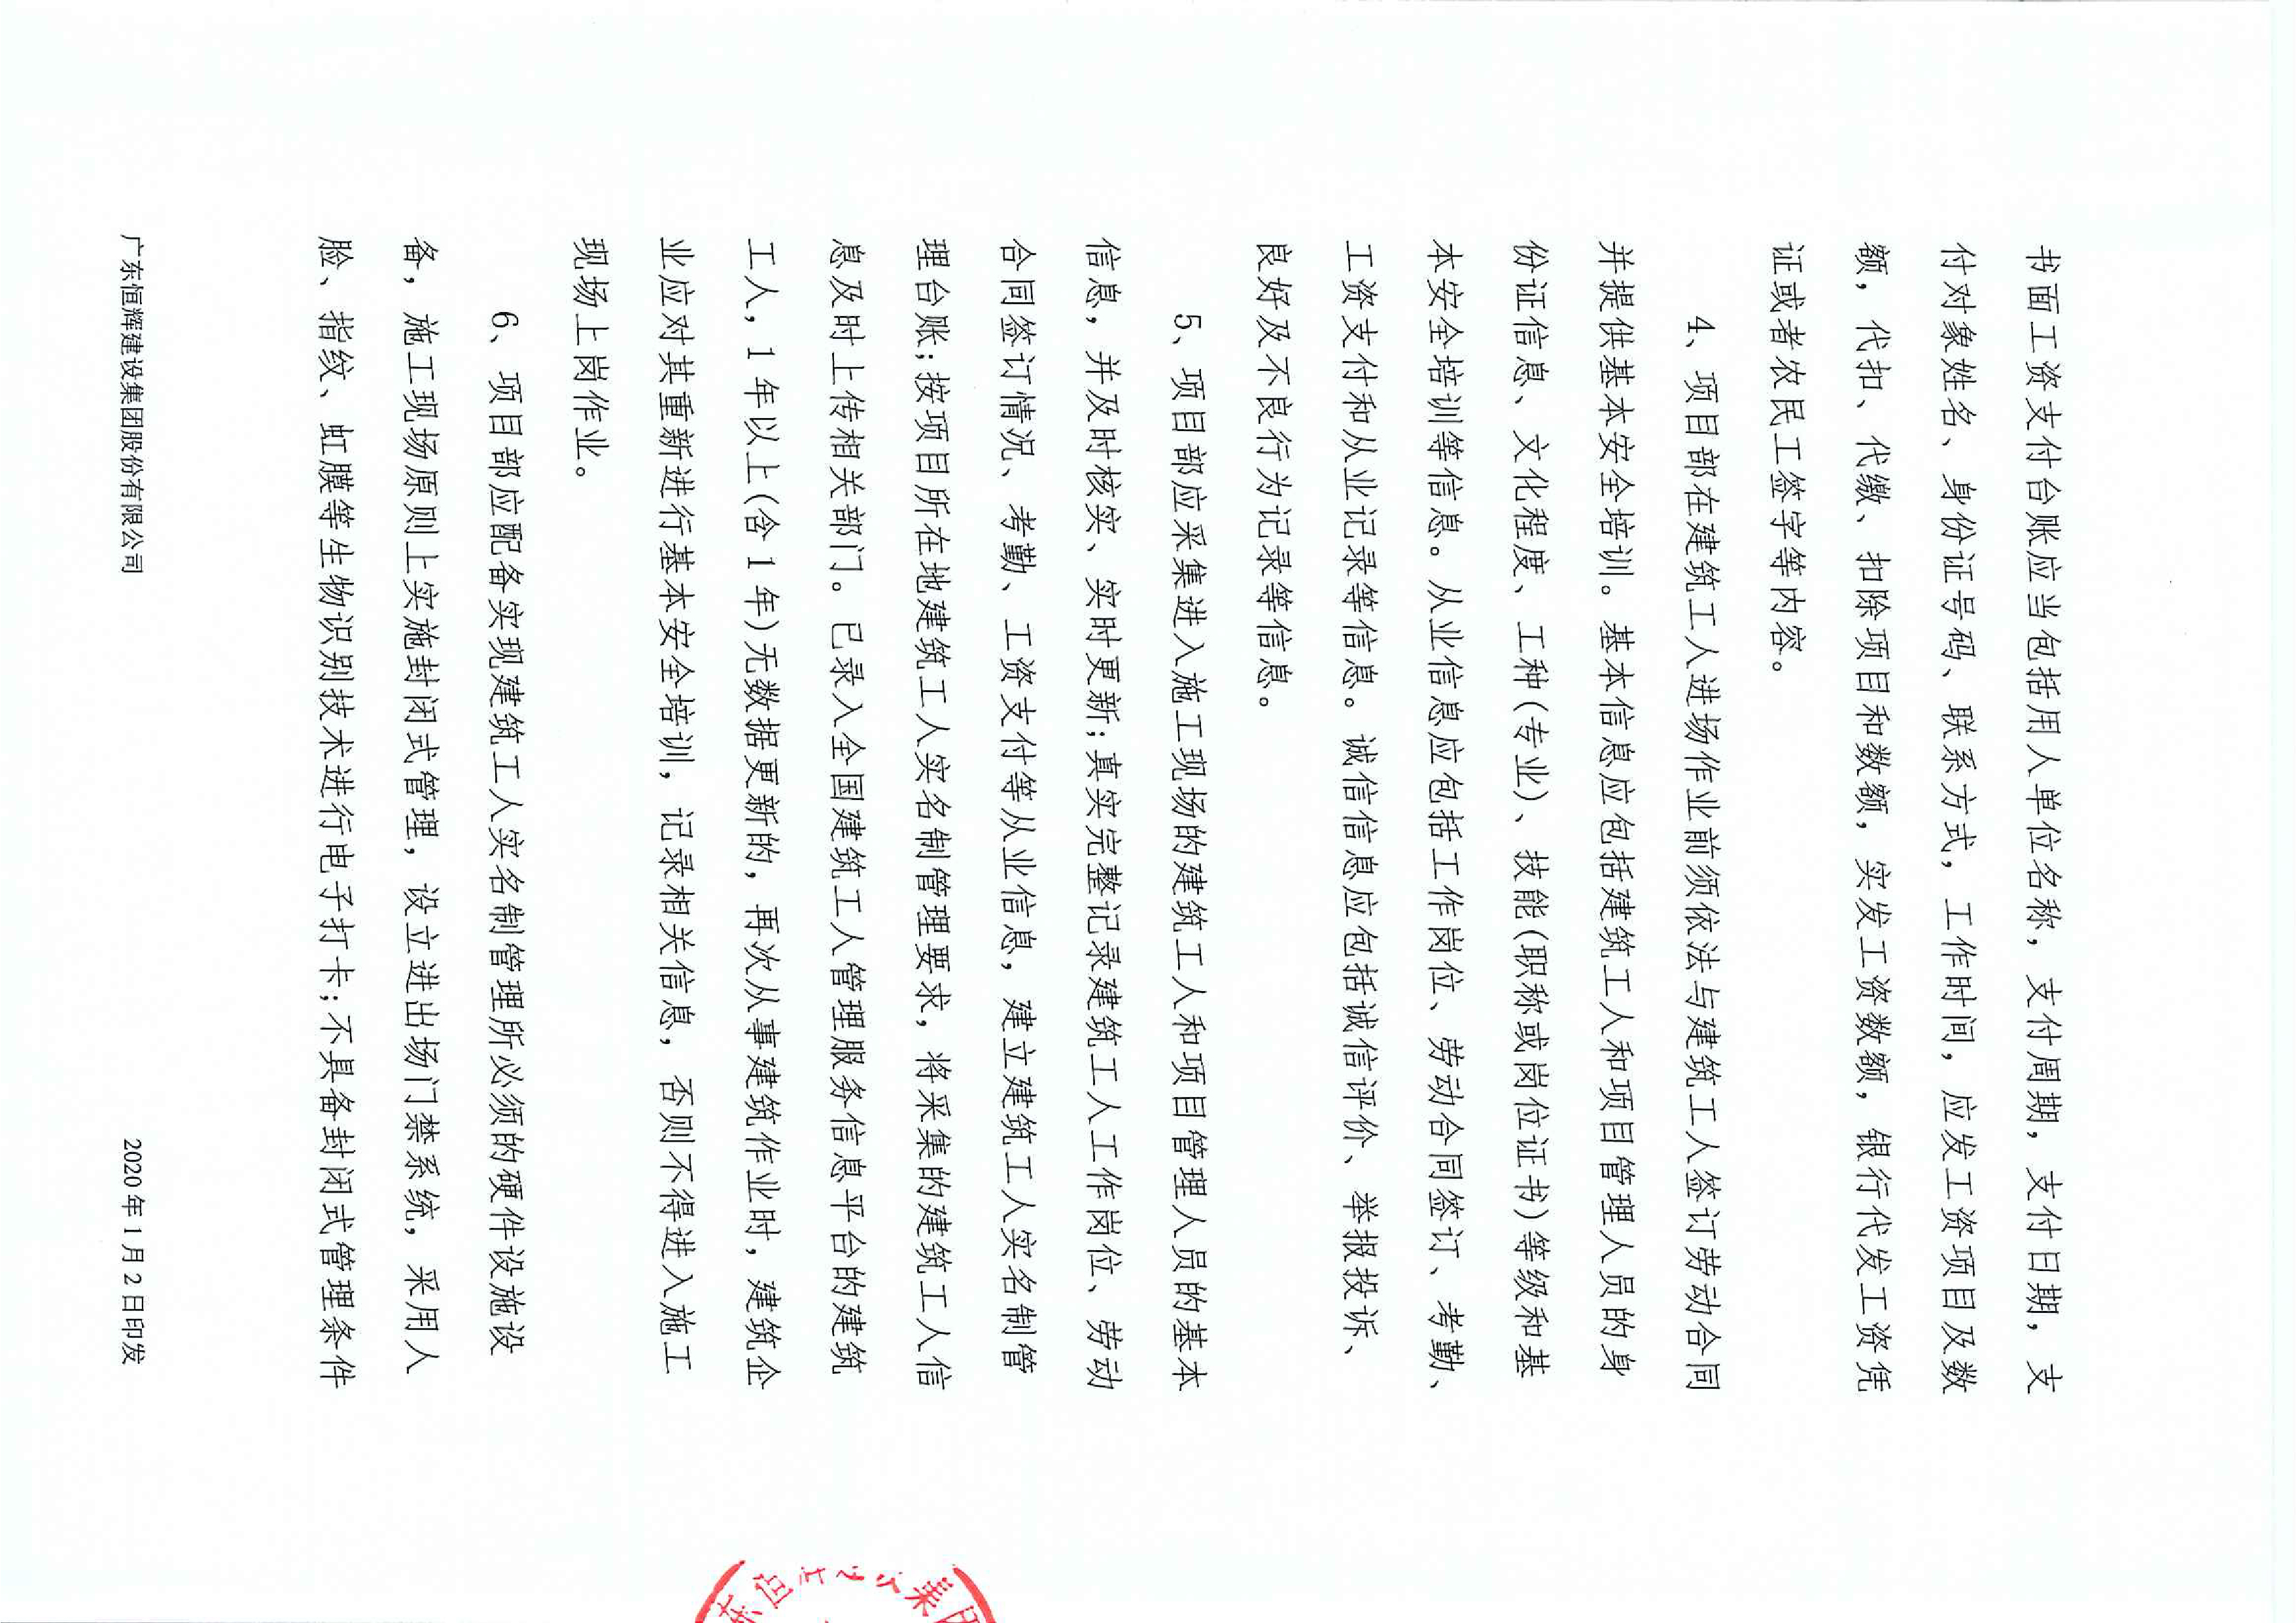 书面工资支付台账应当包括用人单位名称，支付周期，支付日期，支
付对象姓名、身份证号码、联系方式，工作时间，应发工资项目及数
额，代扣、代缴、扣除项目和数额，实发工资数额，银行代发工资凭
证或者农民工签字等内容。
4、项目部在建筑工人进场作业前须依法与建筑工人签订劳动合同
并提供基本安全培训。基本信息应包括建筑工人和项目管理人员的身
份证信息、文化程度、工种(专业)、技能(职称或岗位证书)等级和基
本安全培训等信息。从业信息应包括工作岗位、劳动合同签订、考勤、
工资支付和从业记录等信息。诚信信息应包括诚信评价、举报投诉、
良好及不良行为记录等信息。
5、项目部应采集进入施工现场的建筑工人和项目管理人员的基本
信息，并及时核实、实时更新;真实完整记录建筑工人工作岗位、劳动
合同签订情况、考勤、工资支付等从业信息，建立建筑工人实名制管
理台账;按项目所在地建筑工人实名制管理要求，将采集的建筑工人信
息及时上传相关部门。已录入全国建筑工人管理服务信息平台的建筑
工人，1 年以上(含 1 年)无数据更新的，再次从事建筑作业时，建筑企
业应对其重新进行基本安全培训，记录相关信息，否则不得进入施工
现场上岗作业。
6、项目部应配备实现建筑工人实名制管理所必须的硬件设施设
备，施工现场原则上实施封闭式管理，设立进出场门禁系统，采用人
脸、指纹、虹膜等生物识别技术进行电子打卡;不具备封闭式管理条件
广东恒辉建设集团股份有限公司
2020 年 1 月 2 日印发